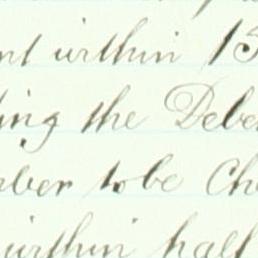 nt within 15
ing the Debe
ber to be Ch
within half